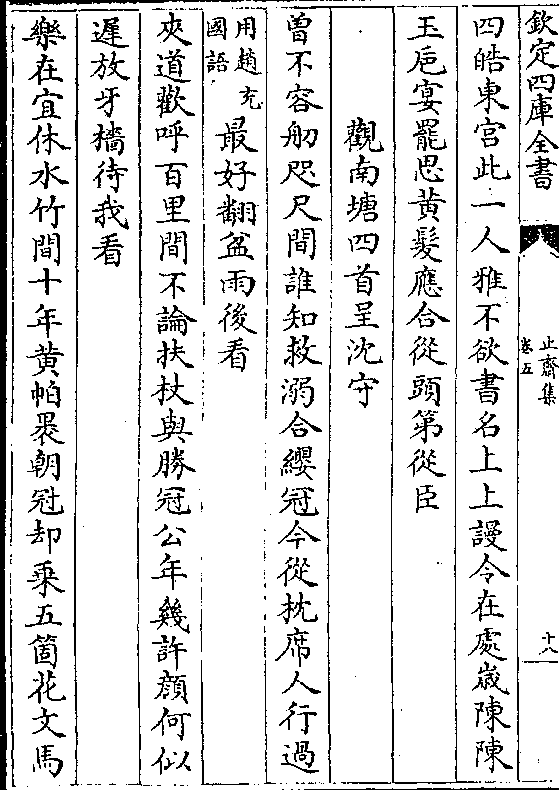 欽定四庫全書
止齋集
卷五
十八
四皓東宮此一人雅不欲書名上上謾令在處嵗陳陳
玉巵宴罷思黄髮應合從頭第從臣
觀南塘四首呈沈守
曾不容舠咫尺間誰知救溺合纓冠今從枕席人行過
用趙充
國語
最好翻盆雨後看
夾道歡呼百里間不論扶杖與勝冠公年幾許顔何似
遲放牙檣待我看
樂在宜休水竹間十年黄帕裹朝冠却乗五箇花文馬